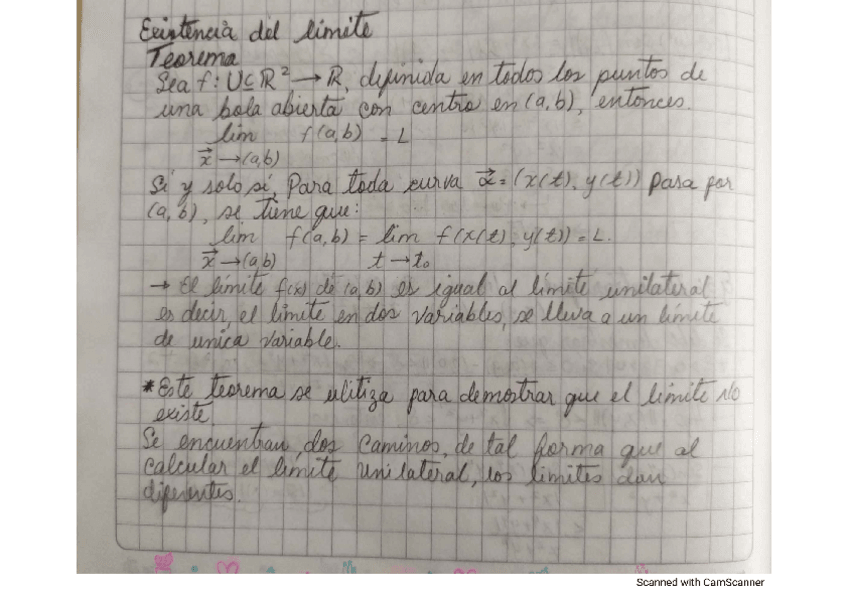 Existencia del límite
Teorema
Sea f: U⊆ℝ² → ℝ, definida en todos los puntos de
una bola abierta con centro en (a,b), entonces.
lim f(a,b) = L
x⃗ →(a,b)
Sí y solo sí, Para toda curva α⃗ = (x(t), y(t)) Para por
(a,b), se tiene que:
lim f(a,b) = lim f(x(t), y(t)) = L.
x⃗ →(a,b) t → t₀
→ El límite f(x) de (a,b) es igual al límite unilateral
es decir, el límite en dos variables, se lleva a un límite
de unica variable.
*Este teorema se ulitiza para demostrar que el límite No
existe.
Se encuentran, dos caminos, de tal forma que al
calcular el límite unilateral, los límites dan
diferentes.
Scanned with CamScanner